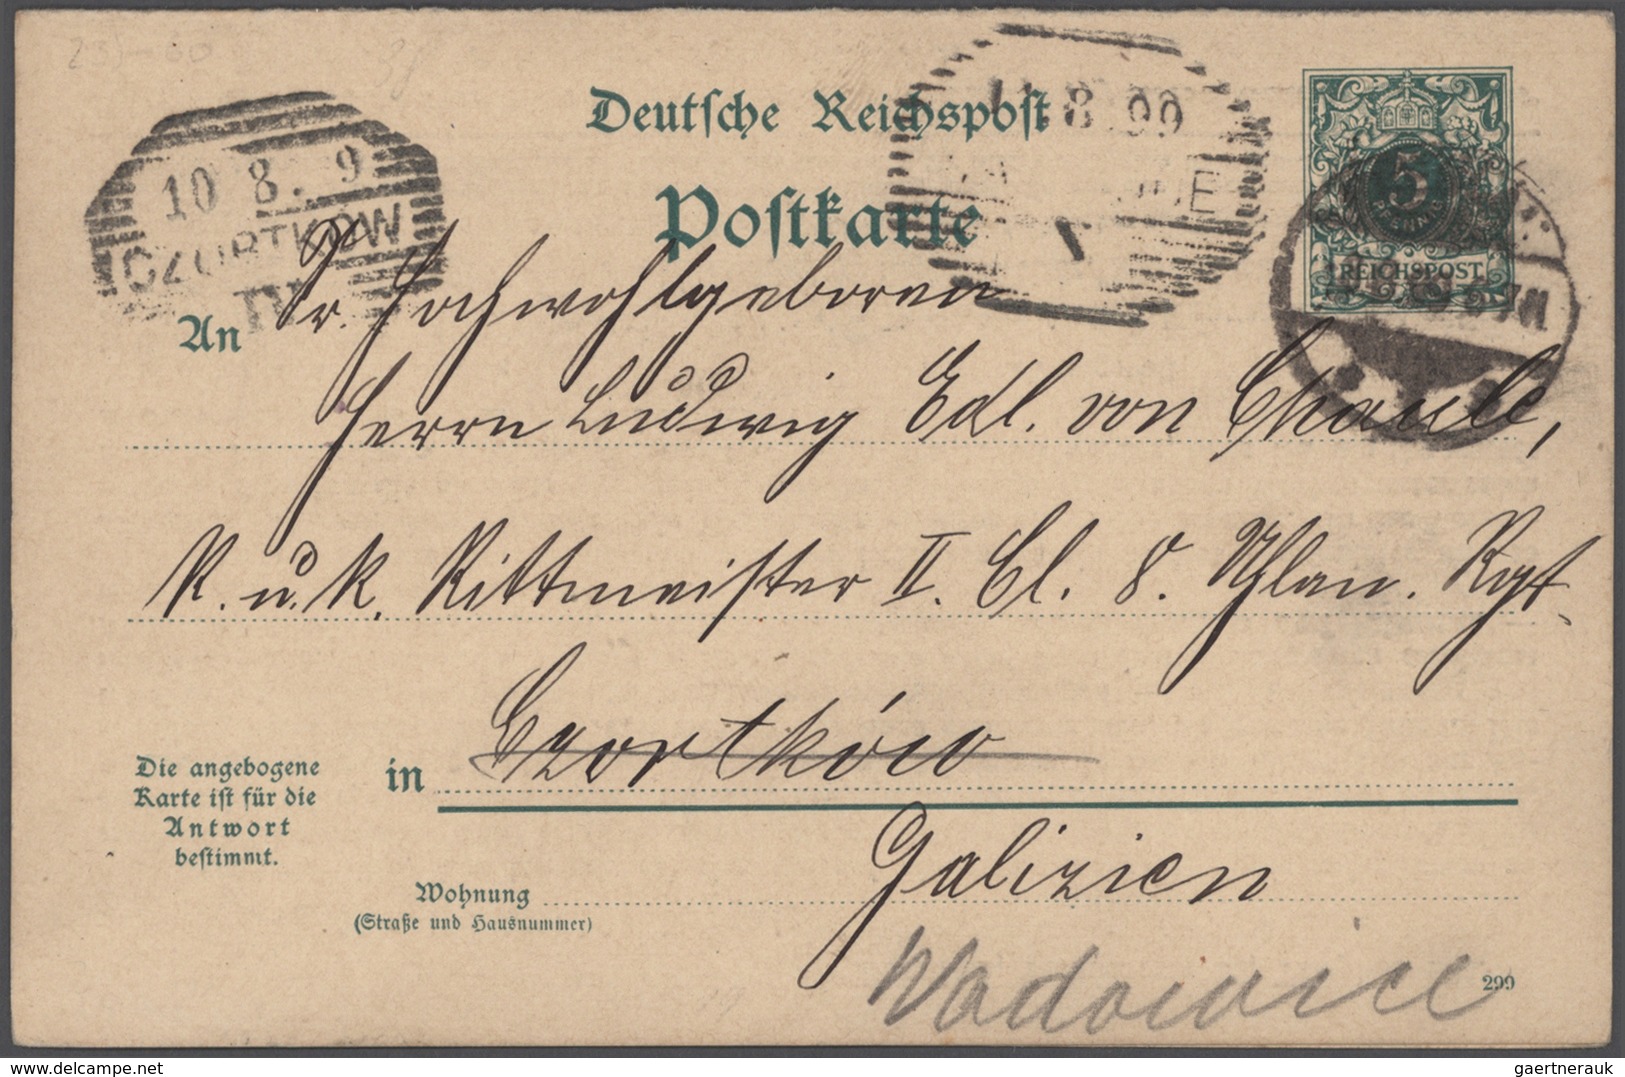 Deutsche Reichspost
8 99
5
PFENNIG
REICHSPOST
10 8. 9
CZORTKOW
Postkarte
Sr. Hochwohlgeboren
An
Herrn Ludwig Edl. von
K. u. k. Rittmeister II. Cl. 8. Uhlan. Rgt.
in Czortków
Die angebogene
Karte ist für die
Antwort
bestimmt.
Galizien
Wohnung
(Straße und Hausnummer)
Wadowice
299
gaertnerauk